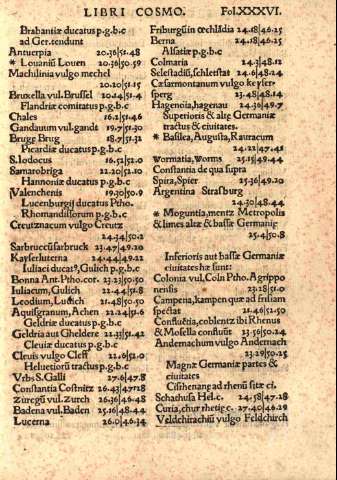 LIBRI COSMO. Fol.XXXVI.
Brabantiæ ducatus p.g.b.c
ad Ger.tendunt
Antuerpia 20.36|51.48
* Louaniū Louen 20.36|50.59
Machulinia vulgo mechel
20.20|51.15
Bruxella vul.Brussel 20.14|51.4
Flandriæ comitatus p.g.b.c
Chales 16.2|51.46
Gandauum vul.gandt 19.7|51.30
Bruge Brug 18.7|51.32
Picardiæ ducatus p.g.b.c
S.Iodocus 16.52|52.0
Samarobriga 22.20|52.10
Hannoniæ ducatus p.g.b.c
Valenchenis 19.30|50.9
Lucenburgij ductus Ptho.
Rhomandissorum p.g.b.c
Creutznacum vulgo Creutz
24.34|50.2
Sarbruccūsarbruck 23.47|49.20
Kayserluterna 24.44|49.22
Iuliaci ducat⁹, Gulich p.g.b.c
Bonna Ant.Ptho.cor. 23.23|50.50
Iuliacum, Gulch 22.44|51.8
Leodium, Ludich 21.48|50.50
Aquisgranum, Achen 22.24|51.6
Geldriæ ducatus p.g.b.c
Geldria aut Gheldere 22.33|51.42
Cleuiæ ducatus p.g.b.c
Cleuis vulgo Cleff 22.16|52.0
Heluetiorū tractus p.g.b.c
Vrbs S.Galli 27.6|47.8
Constantia Costnitz 26.43|47.28
Züregū vul.Zurch 26.36|46.48
Badena vul.Baden 25.16|48.44
Lucerna 26.0|46.34
Friburgū in œchlādia 24.18|46.25
Berna 24.18|46.25
Alsatiæ p.g.b.c
Colmaria 24.3|48.12
Selestadiū, schletstat 24.6|48.24
Cæsarmontanum vulgo keyser
sperg 23.48|48.14
Hagenoia, hagenau 24.36|49.7
Superioris & altę Germaniæ
tractus & ciuitates.
* Basilea, Augusta, Rauracum
24.22|47.41
wormatia, worms 25.15|49.44
Constantia de qua supra
Spira, Spier 25.36|49.20
Argentina Strasburg
24.30|48.44
* Moguntia, mentz Metropolis
& limes altæ & bassæ Germanię
25.4|50.8
Inferioris aut bassæ Germaniæ
ciuitates hæ sunt:
Colonia vul.Cöln Ptho.Agrippo
nensis 23.28|51.0
Campena, kampen quæ ad frisiam
spectat 21.46|52.50
Confluētia, coblentz ibi Rhenus
& Mosella confluūt 23.56|50.24
Andernachum vulgo Andernach
23.29|50.25
Magnæ Germaniæ partes &
ciuitates
Cisrhenang ad rhenū sitæ ci.
Schathusa Hel.c. 24.58|47.28
Curia, chur rhetiæ c. 27.40|46.29
Veldchirachiū vulgo Feldchirch